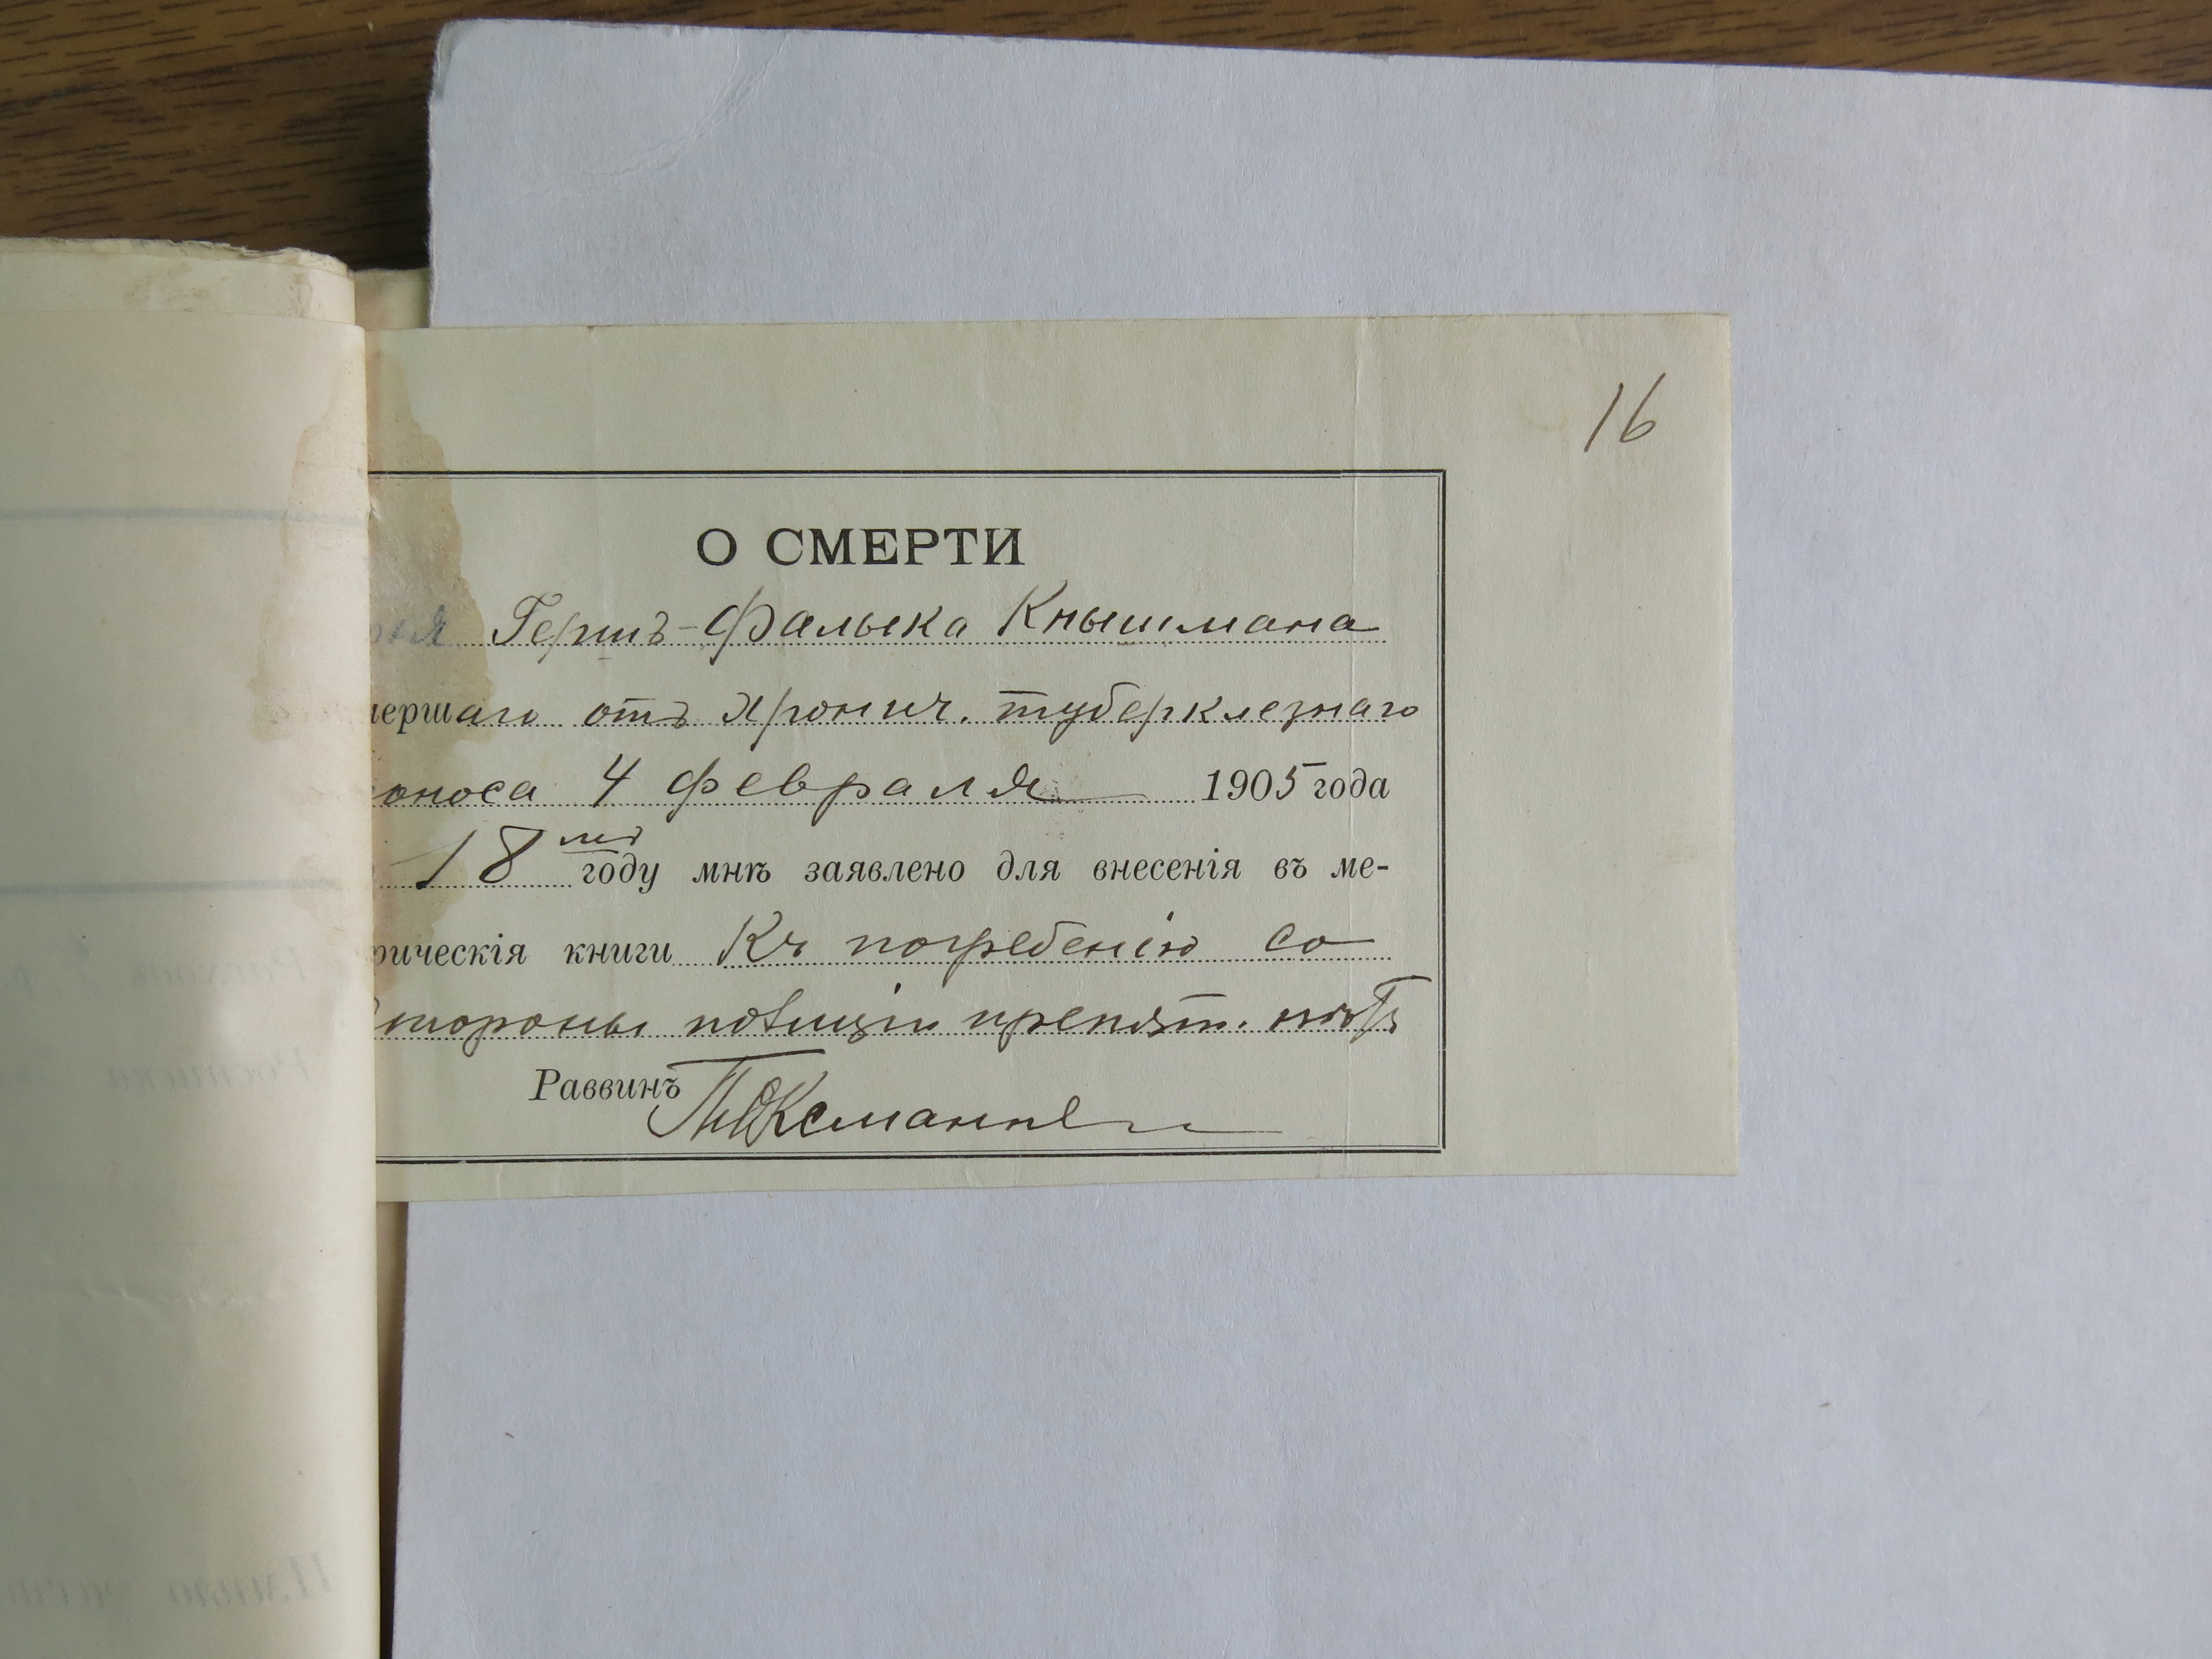 16
О СМЕРТИ
Гершъ-Фалька Кнышмана
мершаго отъ хронич. туберклезнаго
оноса 4 февраля 1905 года
18 году мнѣ заявлено для внесенія въ ме-
рическія книги Къ погребенію со
стороны полиціи препят. нѣтъ
Раввинъ